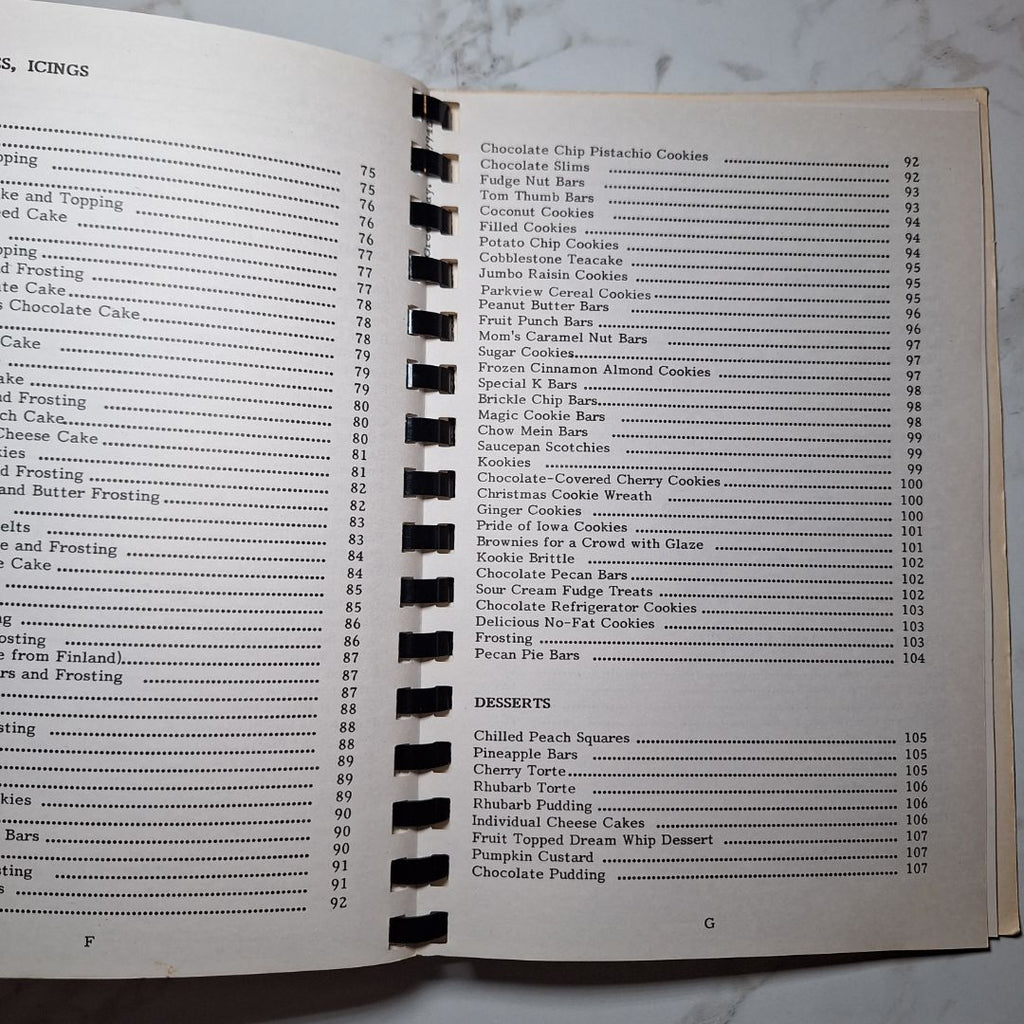 S, ICINGS
75
75
pping 76
76
ke and Topping 76
eed Cake 77
77
pping 77
d Frosting 78
te Cake 78
s Chocolate Cake 78
79
Cake 79
79
ake 80
nd Frosting 80
ch Cake 80
Cheese Cake 81
kies 81
d Frosting 82
and Butter Frosting 82
83
elts 83
e and Frosting 84
e Cake 84
85
85
ng 86
osting 86
e from Finland) 87
rs and Frosting 87
87
88
sting 88
88
89
89
kies 89
90
Bars 90
90
sting 91
s 91
92
F
Chocolate Chip Pistachio Cookies 92
Chocolate Slims 92
Fudge Nut Bars 93
Tom Thumb Bars 93
Coconut Cookies 94
Filled Cookies 94
Potato Chip Cookies 94
Cobblestone Teacake 95
Jumbo Raisin Cookies 95
Parkview Cereal Cookies 95
Peanut Butter Bars 96
Fruit Punch Bars 96
Mom's Caramel Nut Bars 97
Sugar Cookies 97
Frozen Cinnamon Almond Cookies 97
Special K Bars 98
Brickle Chip Bars 98
Magic Cookie Bars 98
Chow Mein Bars 99
Saucepan Scotchies 99
Kookies 99
Chocolate-Covered Cherry Cookies 100
Christmas Cookie Wreath 100
Ginger Cookies 100
Pride of Iowa Cookies 101
Brownies for a Crowd with Glaze 101
Kookie Brittle 102
Chocolate Pecan Bars 102
Sour Cream Fudge Treats 102
Chocolate Refrigerator Cookies 103
Delicious No-Fat Cookies 103
Frosting 103
Pecan Pie Bars 104
DESSERTS
Chilled Peach Squares 105
Pineapple Bars 105
Cherry Torte 105
Rhubarb Torte 106
Rhubarb Pudding 106
Individual Cheese Cakes 106
Fruit Topped Dream Whip Dessert 107
Pumpkin Custard 107
Chocolate Pudding 107
G